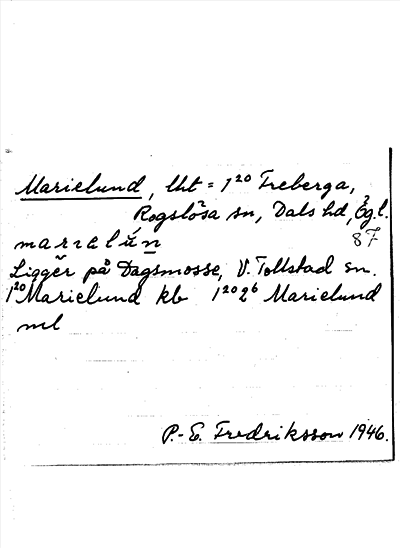 Marielund, lht = 1²⁰ Freberga,
Rogslösa sn, Dals hd, Ög.l.
8 F
marielún
Ligger på Dagsmosse, V. Tollstad sn.
1²⁰ Marielund kb 1²⁰2⁶ Marielund
ml
P.-E. Fredriksson 1946.